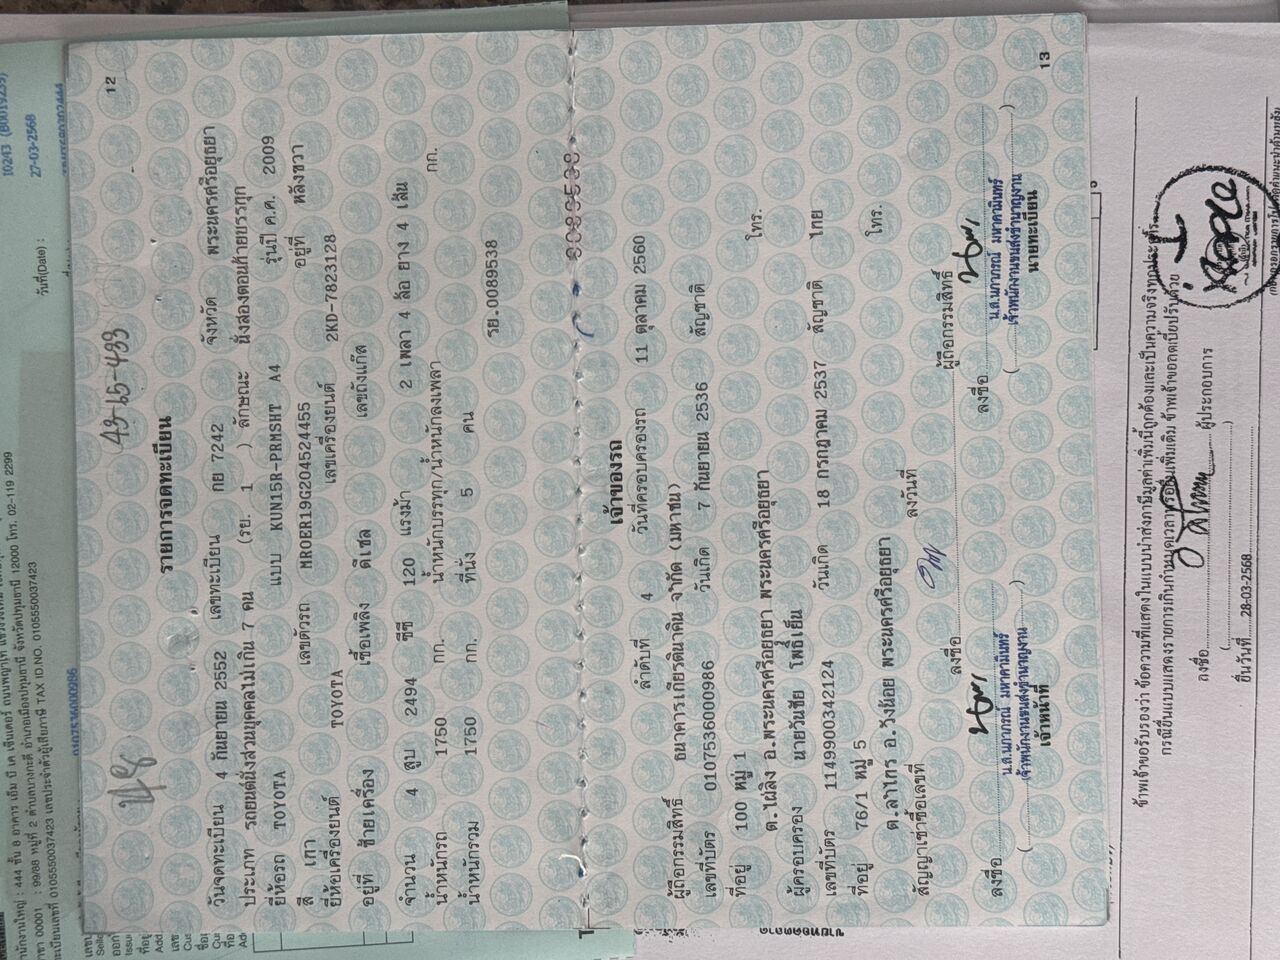 12
43-65-433
รายการจดทะเบียน
วันจดทะเบียน 4 กันยายน 2552 เลขทะเบียน กย 7242 จังหวัด พระนครศรีอยุธยา
ประเภท รถยนต์นั่งส่วนบุคคลไม่เกิน 7 คน (รย. 1 ) ลักษณะ นั่งสองตอนท้ายบรรทุก
ยี่ห้อรถ TOYOTA แบบ KUN15R-PRMSHT A4 รุ่นปี ค.ศ. 2009
สี เทา เลขตัวรถ MROER19G204524455 อยู่ที่ หลังขวา
ยี่ห้อเครื่องยนต์ TOYOTA เลขเครื่องยนต์ 2KD-7823128
อยู่ที่ ซ้ายเครื่อง เชื้อเพลิง ดีเซล เลขถังแก๊ส
จำนวน 4 สูบ 2494 ซีซี 120 แรงม้า 2 เพลา 4 ล้อ ยาง 4 เส้น
น้ำหนักรถ 1750 กก. น้ำหนักบรรทุก/น้ำหนักลงเพลา กก.
น้ำหนักรวม 1750 กก. ที่นั่ง 5 คน
รย.0089538
13
เจ้าของรถ
ลำดับที่ 4 วันที่ครอบครองรถ 11 ตุลาคม 2560
ผู้ถือกรรมสิทธิ์ ธนาคารเกียรตินาคิน จำกัด (มหาชน)
เลขที่บัตร 0107536000986 วันเกิด 7 กันยายน 2536 สัญชาติ
ที่อยู่ 100 หมู่ 1
ต.ไผ่ลิง อ.พระนครศรีอยุธยา พระนครศรีอยุธยา โทร.
ผู้ครอบครอง นายวันชัย โพธิ์เย็น
เลขที่บัตร 1149900342124 วันเกิด 18 กรกฎาคม 2537 สัญชาติ ไทย
ที่อยู่ 76/1 หมู่ 5
ต.ลำไทร อ.วังน้อย พระนครศรีอยุธยา โทร.
สัญญาเช่าซื้อเลขที่ ลงวันที่
ลงชื่อ ผู้ถือกรรมสิทธิ์
ลงชื่อ ลงชื่อ
น.ส.นภาภรณ์ มหาคามินทร์ น.ส.นภาภรณ์ มหาคามินทร์
เจ้าพนักงานขนส่งชำนาญงาน เจ้าพนักงานขนส่งชำนาญงาน
เจ้าหน้าที่ นายทะเบียน
วันที่(Date) : 27-03-2568
0107536000986
ข้าพเจ้าขอรับรองว่า ข้อความที่แสดงในแบบนำส่งภาษีมูลค่าเพิ่มนี้ถูกต้องและเป็นความจริงทุกประการ
กรณียื่นแบบแสดงรายการเกินกำหนดเวลาหรือยื่นเพิ่มเติม ข้าพเจ้าขอลดเบี้ยปรับด้วย
ลงชื่อ ผู้ประกอบการ
ยื่นวันที่ 28-03-2568